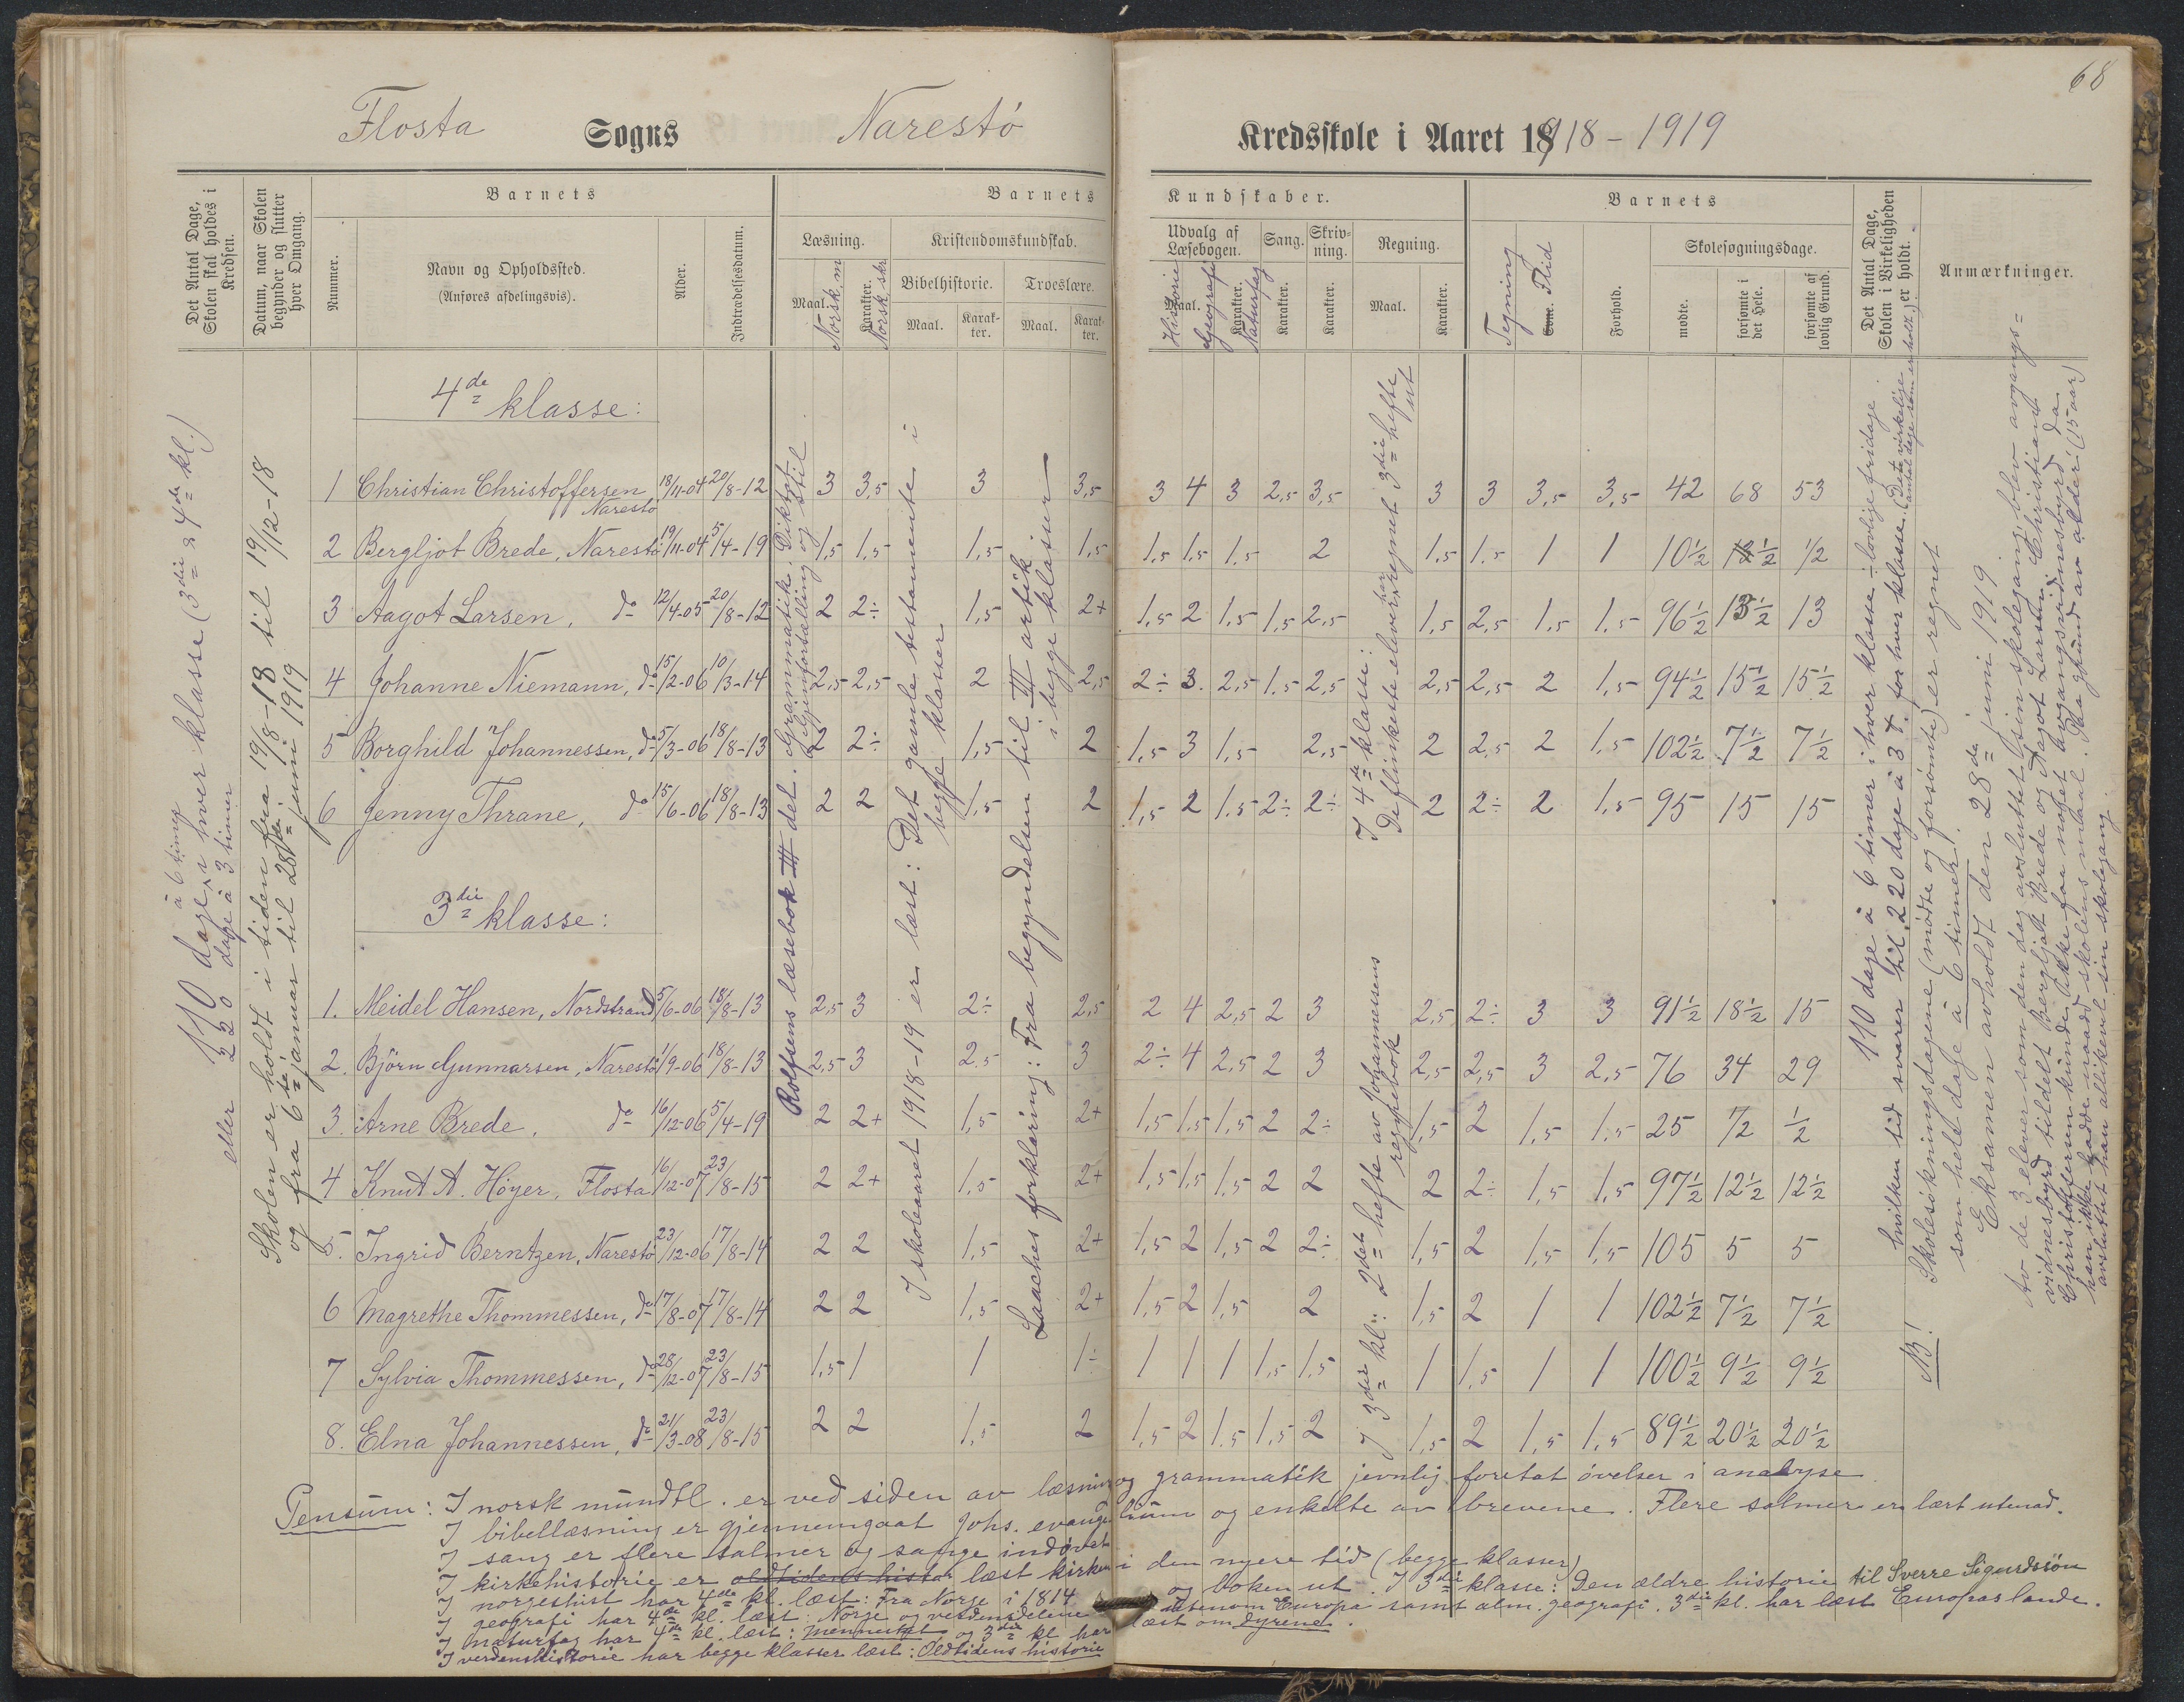 68
Flosta Sogns Narestö Kredsskole i Aaret 1918 - 1919
Det Antal Dage, Skolen skal holdes i Kredsen.
Datum, naar Skolen begynder og slutter hver Omgang.
Barnets
Nummer.
Navn og Opholdssted.
(Anføres afdelingsvis).
Alder.
Indtrædelsesdatum.
Barnets Kundskaber.
Læsning.
Maal. Norsk, m
Karakter. Norsk, skr
Kristendomskundskab.
Bibelhistorie.
Maal.
Karakter.
Troeslære.
Maal.
Karakter.
Udvalg af Læsebogen.
Maal. Historie
Geografi
Karakter. Naturfag
Sang.
Karakter.
Skrivning.
Karakter.
Regning.
Maal.
Karakter.
Barnets
Tegning
Evne. Flid
Forhold.
Skolesøgningsdage.
mødte.
forsømte i det Hele.
forsømte af lovlig Grund.
Det Antal Dage, Skolen i Virkeligheden er holdt.
Anmærkninger.
110 dage à 6 timer i hver klasse (3die & 4de kl.)
eller 220 dage à 3 timer
Skolen er holdt i tiden fra 19/8-18 til 19/12-18
og fra 6te januar til 28de juni 1919
4de klasse:
1 Christian Christoffersen, Narestö 18/11-04 20/8-12 3 3,5 3 3,5 3 4 3 2,5 3,5 3 3 3,5 3,5 42 68 53
2 Bergljot Brede, Narestö 19/11-04 5/4-19 1,5 1,5 1,5 1,5 1,5 1,5 1,5 2 1,5 1,5 1 1 10½ 12½ ½
3 Aagot Larsen, do 12/4-05 20/8-12 2 2÷ 1,5 2+ 1,5 2 1,5 1,5 2,5 1,5 2,5 1,5 1,5 96½ 13½ 13
4 Johanne Niemann, do 15/2-06 10/3-14 2,5 2,5 2 2,5 2÷ 3. 2,5 1,5 2,5 2,5 2,5 2 1,5 94½ 15½ 15½
5 Borghild Johannessen, do 5/3-06 18/8-13 2 2÷ 1,5 2 1,5 3 1,5 2,5 2 2,5 2 1,5 102½ 7½ 7½
6 Jenny Thrane, do 15/6-06 18/8-13 2 2 1,5 2 1,5 2 1,5 2÷ 2÷ 2 2÷ 2 1,5 95 15 15
3die klasse:
1. Meidel Hansen, Nordstrand 5/6-06 18/8-13 2,5 3 2÷ 2,5 2 4 2,5 2 3 2,5 2÷ 3 3 91½ 18½ 15
2. Björn Gunnarsen, Narestö 1/9-06 18/8-13 2,5 3 2,5 3 2÷ 4 2,5 2 3 2,5 2,5 3 2,5 76 34 29
3. Arne Brede, do 16/12-06 5/4-19 2 2+ 1,5 2+ 1,5 1,5 1,5 2 2÷ 1,5 2 1,5 1,5 25 ½ ½
4 Knut A. Höyer, Flosta 16/12-07 23/8-15 2 2+ 1,5 2+ 1,5 1,5 1,5 2 2 2 2÷ 1,5 1,5 97½ 12½ 12½
5. Ingrid Berntzen, Narestö 23/12-06 17/8-14 2 2 1,5 2+ 1,5 2 1,5 2 2÷ 1,5 2 1,5 1,5 105 5 5
6 Magrethe Thommessen, do 17/8-07 17/8-14 2 2 1,5 2+ 1,5 2 1,5 2 1,5 2 1 1 102½ 7½ 7½
7 Sylvia Thommessen, do 28/12-07 23/8-15 1,5 1 1 1÷ 1 1 1 1,5 1,5 1 1,5 1 1 100½ 9½ 9½
8. Elna Johannessen, do 21/3-08 23/8-15 2 2 1,5 2 1,5 2 1,5 1,5 2 1,5 2 1,5 1,5 89½ 20½ 20½
Rolfsens læsebok III del. Grammatik. Diktat
Gjenfortælling og stil
I skoleaaret 1918-19 er læst: Det gamle testamente i
begge klasser
Laaches forklaring: Fra begyndelsen til III artik
i begge klasser
I 4de klasse:
De flinkeste elever har regnet 3die hefte
ut
I 3die kl: 2det hefte av Johannessens
regnebok
110 dage à 6 timer i hver klasse ÷ lovlige fridage.
hvilken tid svarer til 220 dage à 3 t. for hver klasse. (Dette virkelige
antal dage som er holdt.)
NB! Skolesökningsdagene (mödte og forsömte) er regnet
som hele dage à 6 timer!
Eksamen avholdt den 28de juni 1919
Av de 3 elever som den dag avsluttet sin skolegang, blev avgangs=
vidnesbyrd tildelt Bergljot Brede og Aagot Larsen. Christian
Christoffersen kunde ikke faa noget avgangsvidnesbyrd da
han ikke hadde naadd skolens maal. Paa grund av alder (15 aar)
avsluttet han allikevel sin skolegang.
Pensum: I norsk mundtl. er ved siden av læsning og grammatik jevnlig foretat övelser i analyse.
I bibellæsning er gjennemgaat Johs. evangelium og enkelte av brevene. Flere salmer er lært utenad.
I sang er flere salmer og sange indövet
I kirkehistorie er oldtidens histor læst kirken i den nyere tid (begge klasser)
I norgeshist har 4de kl. læst: Fra Norge i 1814 og boken ut. I 3die klasse: Den ældre historie til Sverre Sigurdssön
I geografi har 4de kl. læst: Norge og verdensdelene utenom Europa samt alm. geografi. 3die kl. har læst Europas lande.
I naturfag har 4de kl. læst: Mennesket og 3die kl har læst om dyrene.
I verdenshistorie har begge klasser læst: Oldtidens historie